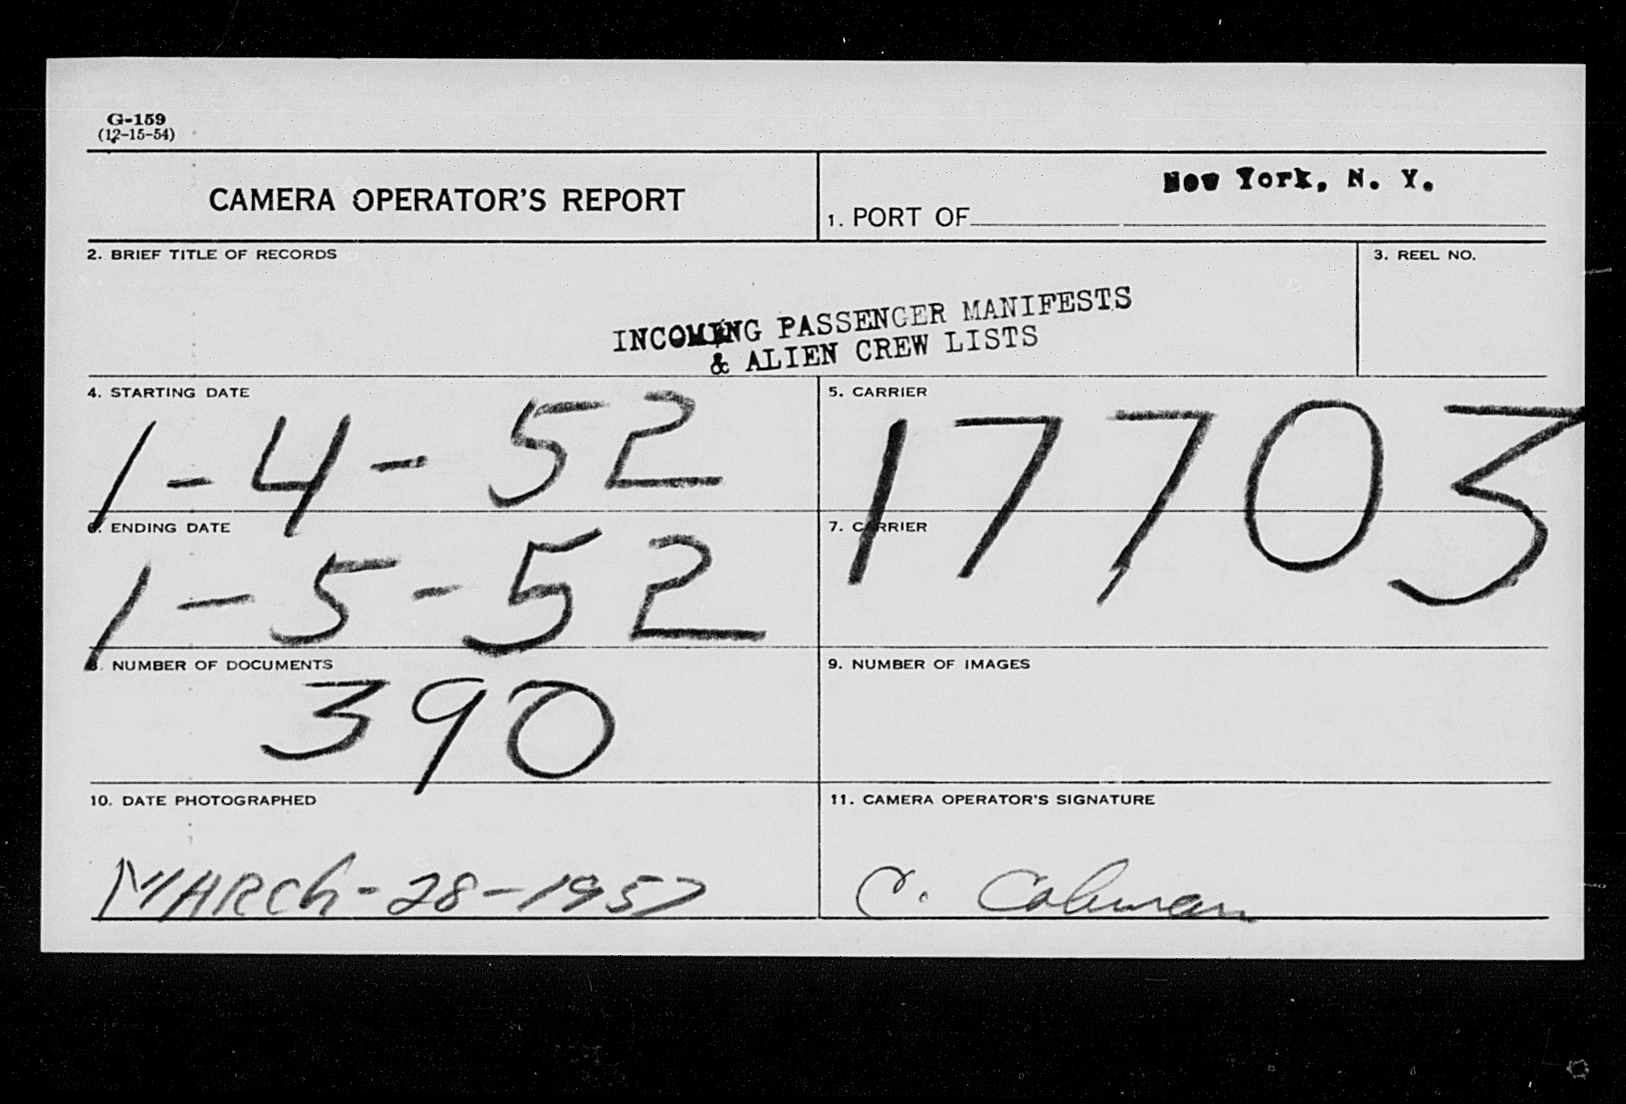 G-159
(12-15-54)
CAMERA OPERATOR'S REPORT
New York, N. Y.
1. PORT OF
2. BRIEF TITLE OF RECORDS
3. REEL NO.
INCOMING PASSENGER MANIFESTS
& ALIEN CREW LISTS
4. STARTING DATE
1-4-52
5. CARRIER
17703
6. ENDING DATE
1-5-52
7. CARRIER
8. NUMBER OF DOCUMENTS
390
9. NUMBER OF IMAGES
10. DATE PHOTOGRAPHED
MARCh-28-1957
11. CAMERA OPERATOR'S SIGNATURE
C. Colman